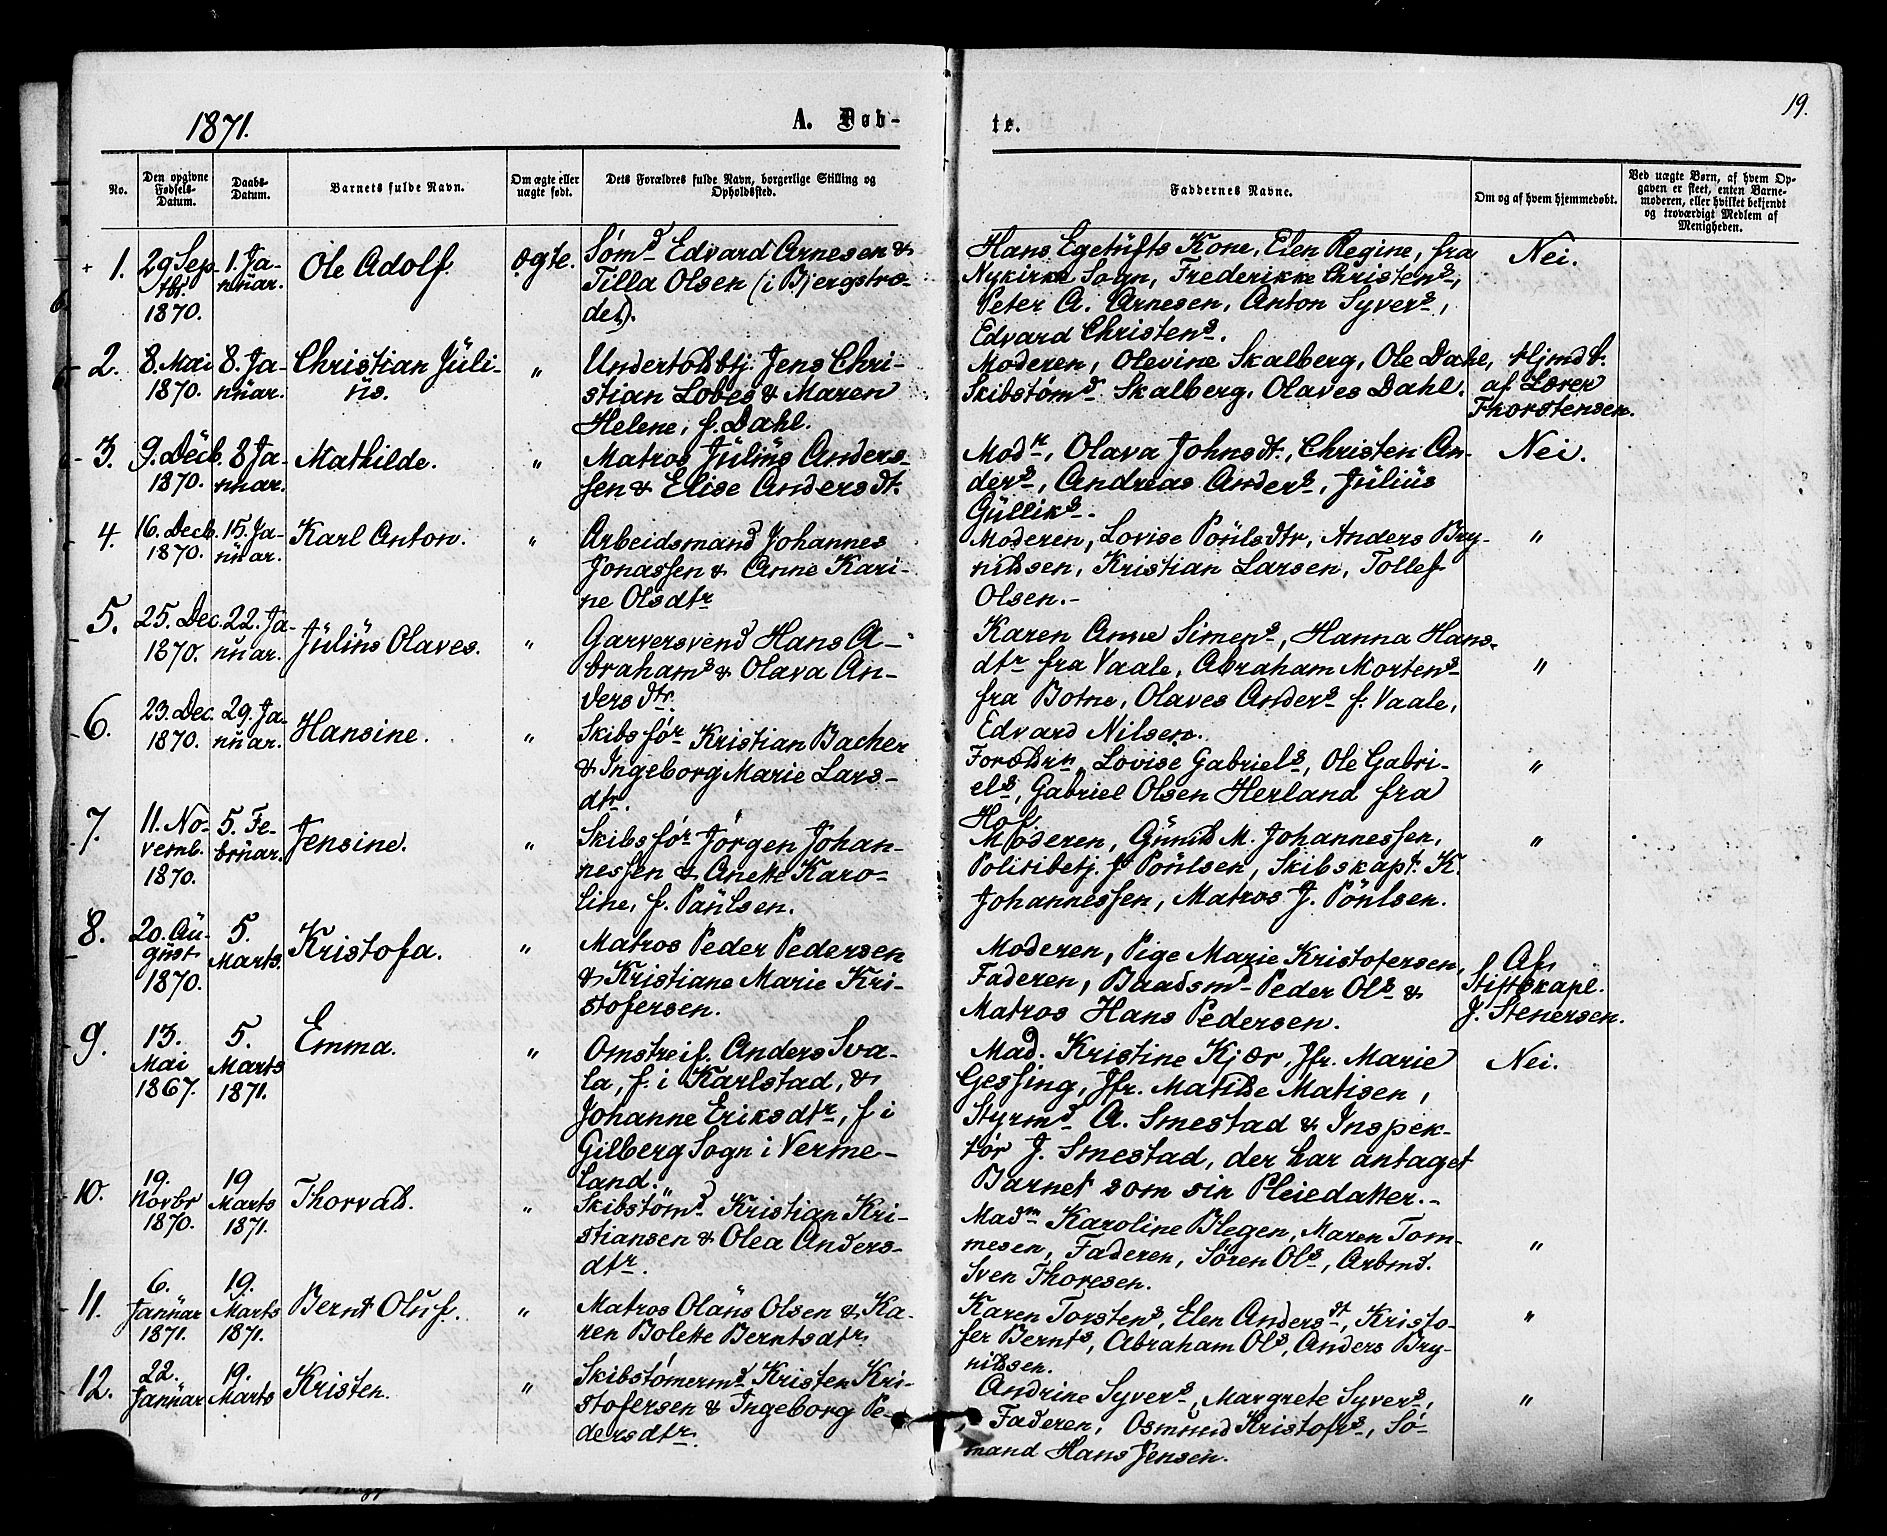 19.
1871.
A. Døb-
te.
No.
Den opgivne Fødsels-Datum.
Daabs-Datum.
Barnets fulde Navn.
Om ægte eller uægte født.
Dets Forældres fulde Navn, borgerlige Stilling og Opholdssted.
Faddernes Navne.
Om og af hvem hjemmedøbt.
Ved uægte Børn, af hvem Op-
gaven er skeet, enten Barne-
moderen, eller hvilket bekjendt
og troværdigt Medlem af
Menigheden.
1.
29 Sep-
tbr.
1870.
1. Ja-
nuar.
Ole Adolf.
ægte.
Sømd Edvard Arnesen &
Tilla Olsen (i Bjergstræ-
det).
Hans Egetufts Kone, Elen Regine, fra
Nykirke Sogn, Frederikke Christens,
Peter A. Arnesen, Anton Syvers,
Edvard Christens.
Nei.
2.
8. Mai
1870.
8. Ja-
nuar.
Christian Juli-
us.
"
Undertoldbtj. Jens Chri-
stian Lobes & Maren
Helene, f. Dahl.
Moderen, Olevine Skalberg, Ole Dahl,
Skibstømd Skalberg, Olaves Dahl.
Hjmdb.
af Lærer
Thorstensen.
3.
9. Decb.
1870.
8 Ja-
nuar.
Mathilde.
"
Matros Julius Anders-
sen & Elise Andersdt.
Modn, Olava Johnsdt., Christen An-
ders, Andreas Anders, Julius
Gulliks.
Nei.
4.
16. Decb.
1870.
15. Ja-
nuar.
Karl Anton.
"
Arbeidsmand Johannes
Jonassen & Anne Kari-
ne Olsdtr
Moderen, Lovise Poulsdtr, Anders Bry-
nildsen, Kristian Larsen, Tollef
Olsen.-
"
5.
25. Dec.
1870.
22. Ja-
nuar.
Julius Olaves.
"
Garversvend Hans A-
brahams & Olava An-
dersdtr.
Karen Anne Simens, Hanna Hans-
dtr fra Vaale, Abraham Mortens
fra Botne, Olaves Anders f. Vaale,
Edvard Nilsen.
"
6.
23. Dec.
1870.
29. Ja-
nuar.
Hansine.
"
Skibsfør Kristian Bacher
& Ingeborg Marie Lars-
dtr.
Forældrn, Lovise Gabriels, Ole Gabri-
els, Gabriel Olsen Herland fra
Hof.
"
7.
11. No-
vemb.
1870.
5. Fe-
bruar.
Jensine.
"
Skibsfør Jörgen Johan-
nessen & Anette Karo-
line, f. Paulsen.
Moderen, Gunild M. Johannessen,
Politibetj. J. Poulsen, Skibskapt. K.
Johannessen, Matros J. Poulsen.
"
8.
20. Au-
gust
1870.
5.
Marts.
Kristofa.
"
Matros Peder Pedersen
& Kristiane Marie Kri-
stofersen.
Moderen, Pige Marie Kristofersen,
Faderen, Baadsmd Peder Ols &
Matros Hans Pedersen.
Af
Stiftskapl.
J. Stenersen.
9.
13.
Mai
1867.
5.
Marts
1871.
Emma.
"
Omstreif. Anders Sva-
la, f. i Karlstad, &
Johanne Eriksdtr, f i
Gilberg Sogn i Verme-
land.
Mad. Kristine Kjær, Jfr. Marie
Gessing, Jfr. Matilde Matisen,
Styrmd A. Smestad & Inspek-
tør J. Smestad, der har antaget
Barnet som sin Pleiedatter.-
Nei.
10.
19.
Novbr
1870.
19
Marts
1871.
Thorvald.
"
Skibstømd Kristian Kri-
stiansen & Olea Anders-
dtr.
Madm Karoline Blegen, Maren Tom-
mesen, Faderen, Søren Ols, Arbmd.
Sven Thoresen.
"
11.
6.
Januar
1871.
19.
Marts
1871.
Bernt Oluf.
"
Matros Olaus Olsen & Ka-
ren Bolette Berntsdtr.
Karen Torstens, Elen Andersdt, Kristo-
fer Bernts, Abraham Ols, Anders Bry-
nildsen.
"
12.
22.
Januar
19.
Marts
Kristen.
"
Skibstømermd Kristen Kri-
stofersen & Ingeborg Pe-
dersdtr.
Andrine Syvers, Margrete Syvers,
Faderen, Osmund Kristofrs, Sø-
mand Hans Jensen.
"